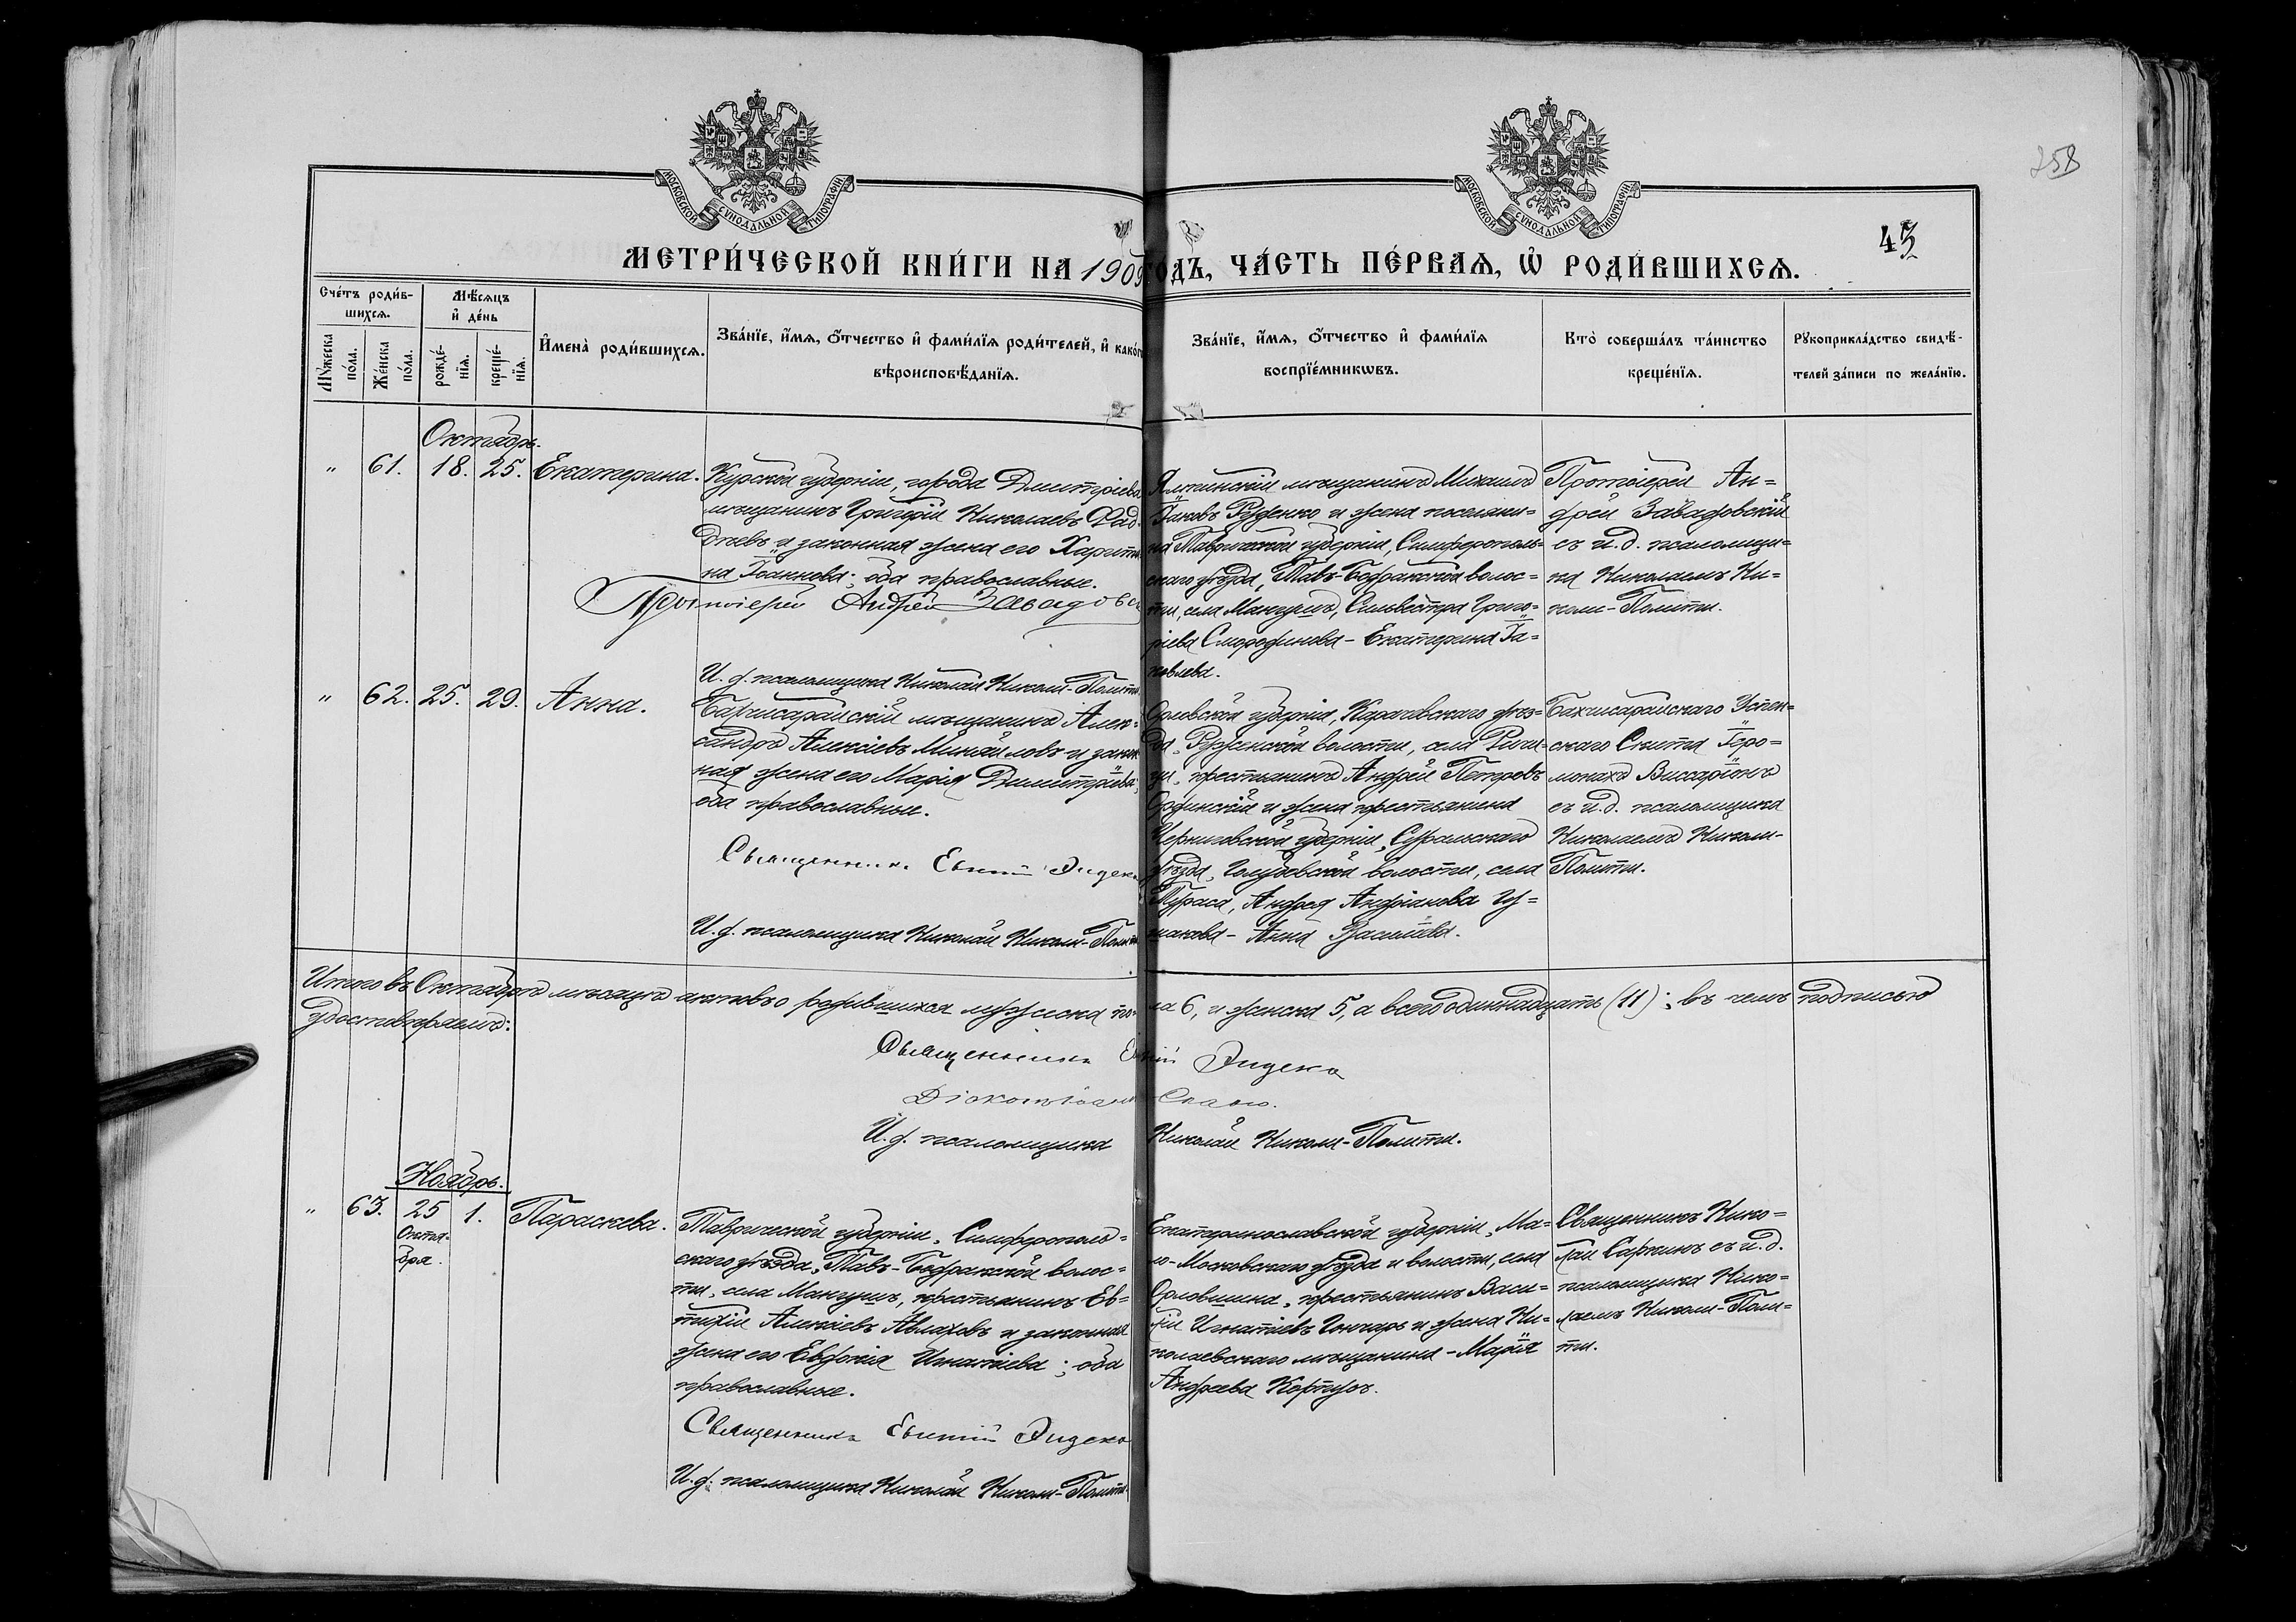 258
43
МОСКОВСКОЙ СѴНОДАЛЬНОЙ ТИПОГРАФІИ
МОСКОВСКОЙ СѴНОДАЛЬНОЙ ТИПОГРАФІИ
МЕТРИ́ЧЕСКОЙ КНИ́ГИ НА 1909 ГОДЪ, ЧА́СТЬ ПЕ́РВАѦ, Ѡ҆ РОДИ́ВШИХСѦ.
Сче́тъ роди́в-
шихсѧ.
Мꙋ́жеска по́ла.
Же́нска по́ла.
Мѣ́сѧцъ
и҆ де́нь
рожде́-
нїѧ.
креще́-
нїѧ.
И҆мена̀ роди́вшихсѧ.
Зва́нїе, и҆́мѧ, ѻ҆́тчество и҆ фами́лїѧ роди́телей, и҆ како́гѡ
вѣроисповѣ́данїѧ.
Зва́нїе, и҆́мѧ, ѻ҆́тчество и҆ фами́лїѧ
воспрїе́мникѡвъ.
Кто̀ соверша́лъ та́инство
креще́нїѧ.
Рꙋкоприкла́дство свидѣ́-
телей за́писи по жела́нїю.
Октябрь.
" 61. 18. 25. Екатерина.
Курской губерніи, города Дмитріева
мѣщанинъ Григорій Николаевъ Фад-
дѣевъ и законная жена его Харити-
на Іоаннова; оба православные.
Протоіерей Андрей Завадовс
И. д. псаломщика Николай Николи-Политы
Ялтинскій мѣщанинъ Михаилъ
Іаковъ Руденко и жена поселяни-
на Таврической губерніи, Симферополь-
скаго уѣзда, Тавъ-Бодракской волос-
ти, села Мангушъ, Сильвестра Григо-
ріева Смородинова - Екатерина Іа-
ковлева.
Протоіерей Ан=
дрей Завадовскій
съ и. д. псаломщи=
ка Николаемъ Ни=
коли-Политы.
" 62. 25. 29. Анна.
Бахчисарайскій мѣщанинъ Алек-
сандръ Алексіевъ Михайловъ и закон-
ная жена его Марія Димитріева;
оба православные.
Священникъ Евѳимій
И. д. псаломщика Николай Николи-Полит
Орловской губерніи, Карачевскаго уѣз=
да, Руженской волости,
крестьянинъ Андрей Петровъ
и жена крестьянина
Черниговской губерніи, Суражскаго
уѣзда, Голубовской волости, села
Андрея Андріанова
- Анна Васильева.
Бахчисарайскаго Успен=
скаго Скита Іеро=
монахъ Виссаріонъ
съ и. д. псаломщика
Николаемъ Николи-
Политы.
Итого въ Октябрѣ мѣсяцѣ актовъ о родившихся мужска пола 6, и женска 5, а всего одиннадцать (11); въ чемъ подписью
удостовѣряемъ:
Священникъ
И. д. псаломщика Николай Николи-Политы.
Ноябрь.
" 63. 25 Октя-бря. 1. Параскева.
Таврической губерніи, Симферополь=
скаго уѣзда, Тавъ-Бодракской волос=
ти, села Мангушъ, крестьянинъ Ев=
тихій Алексіевъ Авлаховъ и законная
жена его Евдокія Игнатіева; оба
православные.
Священникъ Евѳимій
И. д. псаломщика Николай Николи-Полит
Екатеринославской губерніи, Ма=
ло-Московскаго уѣзда и волости, села
Орловщина, крестьянинъ Васи=
лій Игнатіевъ Гончаръ и жена Ни=
колаевскаго мѣщанина - Марія
Андреева
Священникъ Нико=
лай Саркинъ съ и. д.
псаломщика Нико=
лаемъ Николи-Поли=
ты.